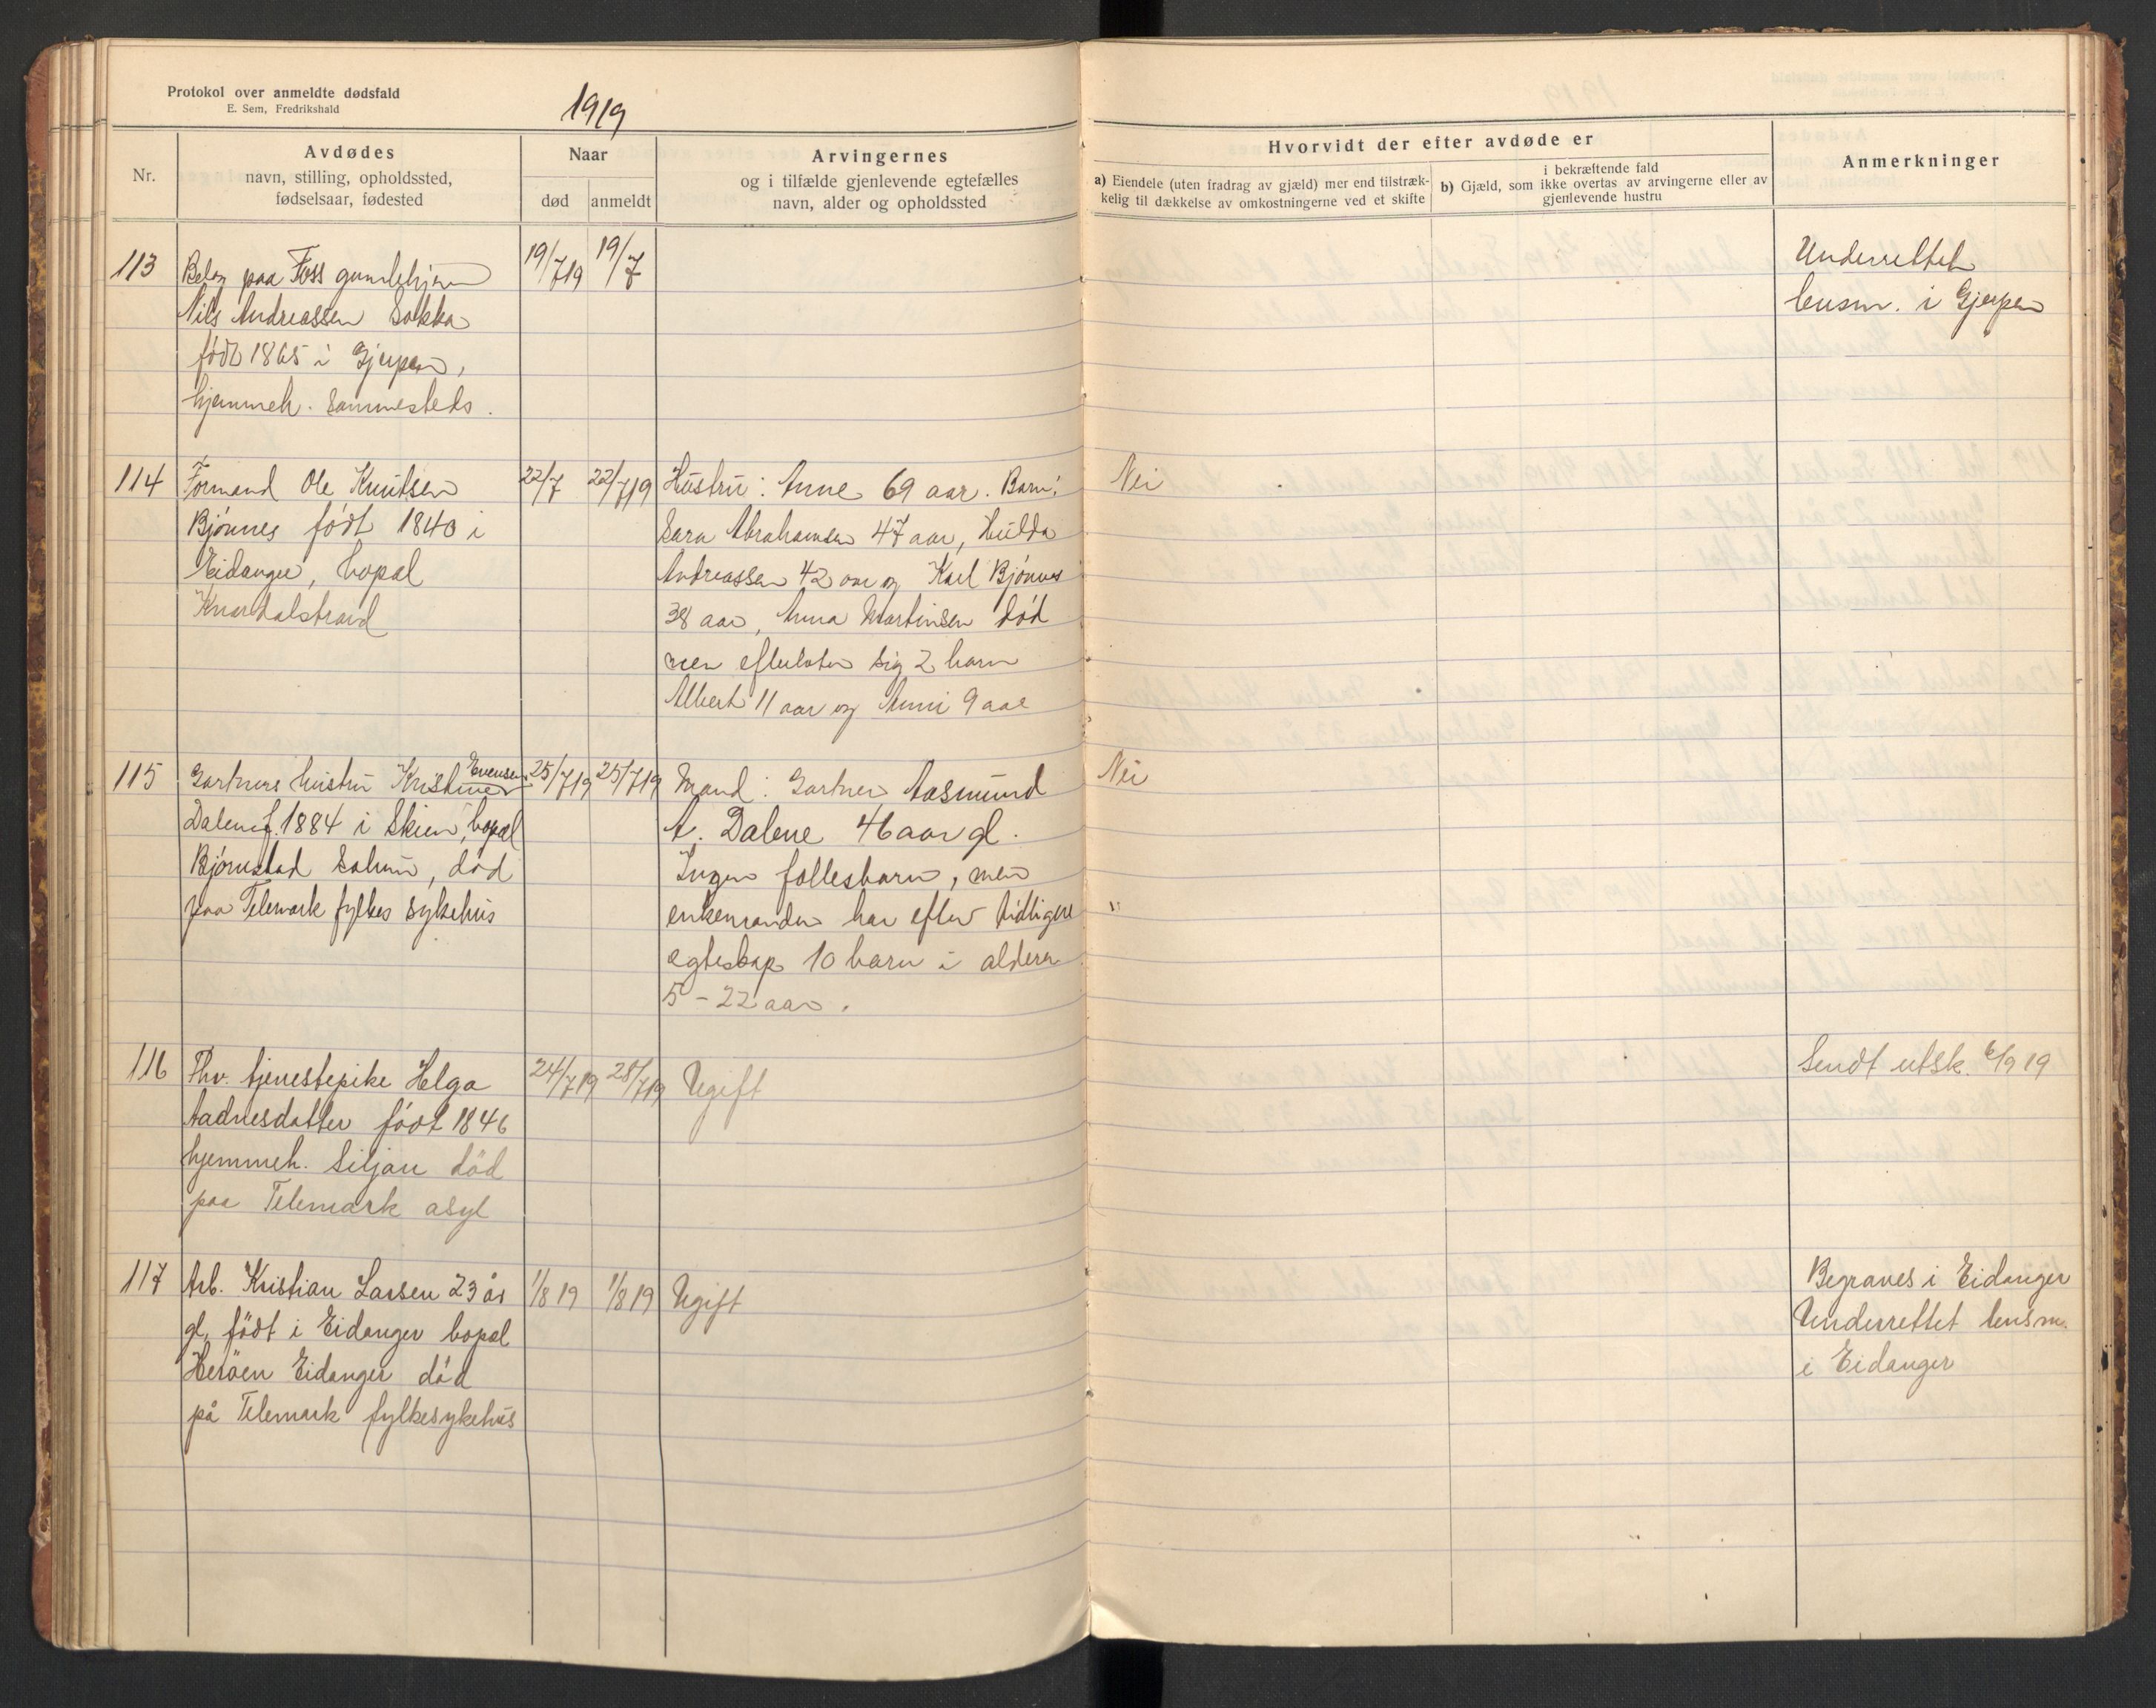 Protokol over anmeldte dødsfald
E. Sem, Fredrikshald
1919
Nr.
Avdødes
navn, stilling, opholdssted,
fødselsaar, fødested
Naar
død
anmeldt
Arvingernes
og i tilfælde gjenlevende egtefælles
navn, alder og opholdssted
Hvorvidt der efter avdøde er
a) Eiendele (uten fradrag av gjæld) mer end tilstræk-
kelig til dækkelse av omkostningerne ved et skifte
i bekræftende fald
b) Gjæld, som ikke overtas av arvingerne eller av
gjenlevende hustru
Anmerkninger
113
Beleg paa Foss gamlehjem
Nils Andreassen Sokka
født 1865 i Gjerpen,
hjemmeh. sammesteds.
19/7 19
19/7
Underrettet
lensm. i Gjerpen
114
Formand Ole Knutsen
Bjønnes født 1840 i
Eidanger, bopæl
Knardalstrand
22/7
22/7 19
Hustru: Anne 69 aar. Barn:
Sara Abrahamsen 47 aar, Hulda
Andreassen 42 aar og Karl Bjønnes
38 aar, Anna Martinsen død
men efterlater sig 2 barn
Albert 11 aar og Anni 9 aar
Nei
115
Gartners hustru Kristine Evensen
Dalene f. 1884 i Skien, bopæl
Bjørnstad Solum, død
paa Telemark fylkes sykehus
25/7 19
25/7 19
Mand: Gartner Aasmund
A. Dalene 46 aar gl.
Ingen fællesbarn, men
enkemanden har efter tidligere
egteskap 10 barn i alderen
5 - 22 aar.
Nei
"
116
Fhv. tjenestepike Helga
Aadnesdatter født 1846
hjemmeh. Siljan död
paa Telemark asyl
24/7 19
28/7 19
Ugift
Sendt utsk. 6/9 19
117
Arb. Kristian Larsen 23 år
gl, födt i Eidanger bopæl
Heröen Eidanger död
på Telemark fylkesykehus
1/8 19
1/8 19
Ugift
Begraves i Eidanger
Underrettet lensm.
i Eidanger